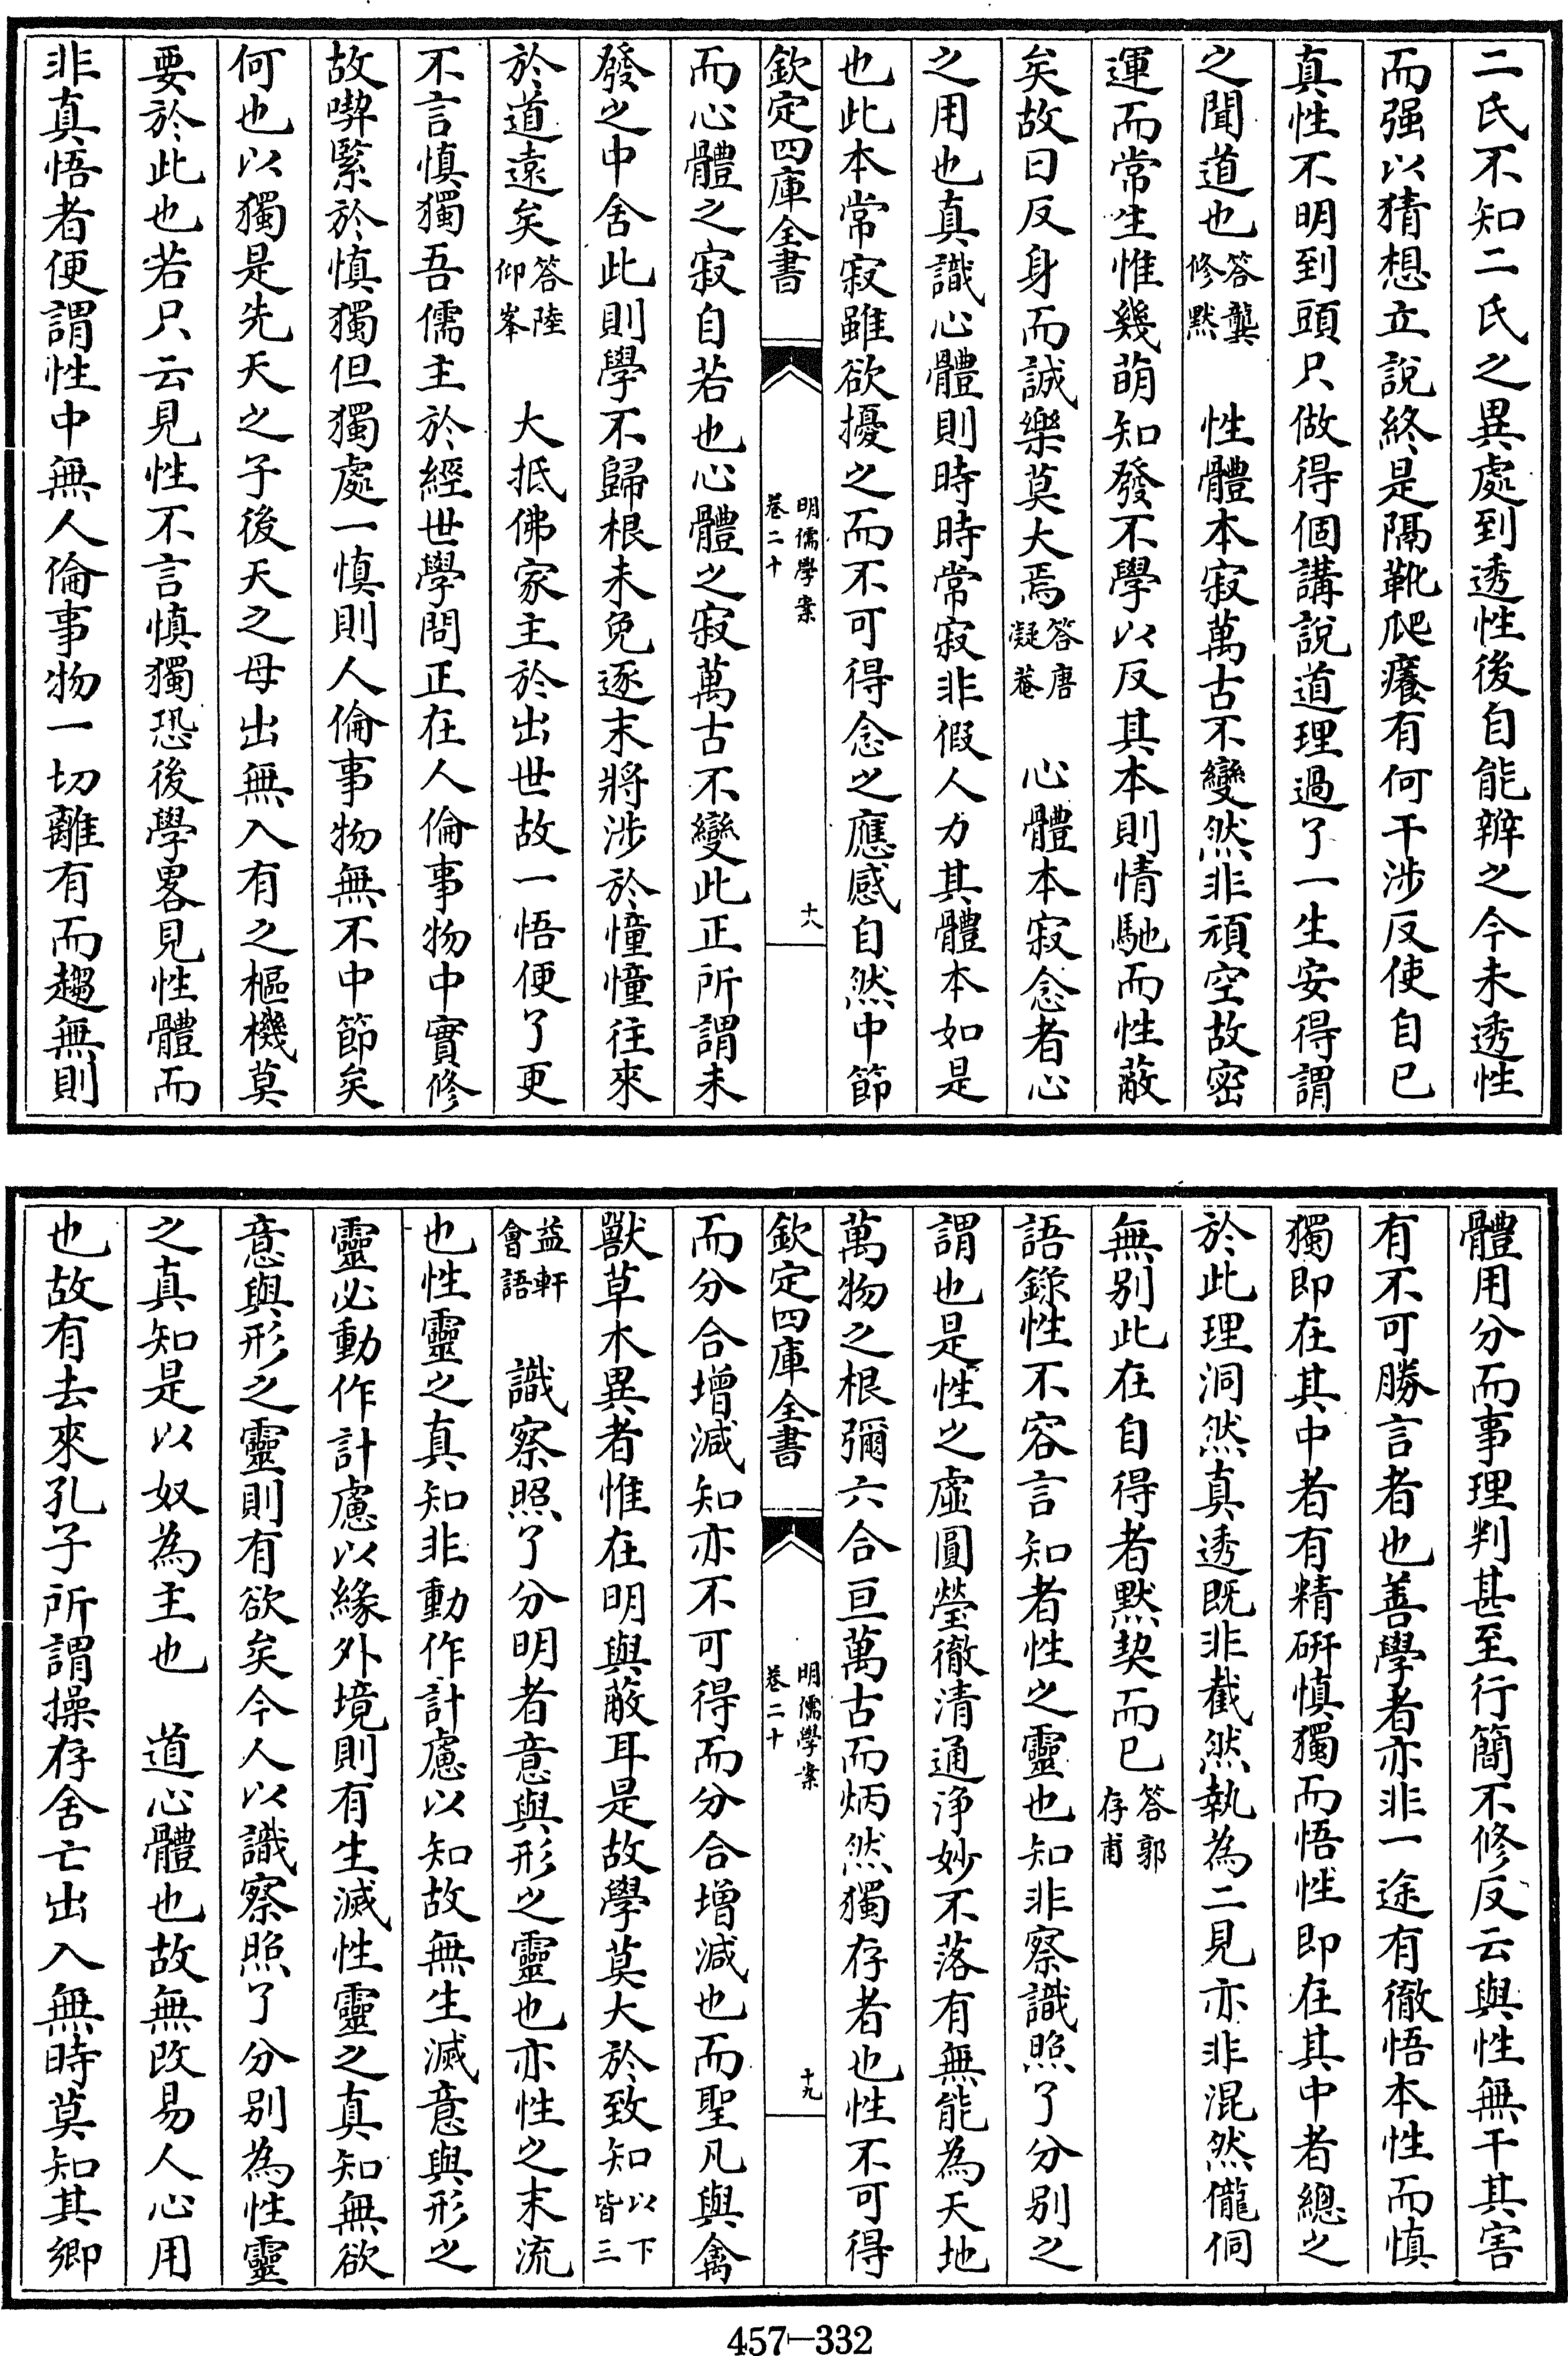 二氏不知二氏之異處到透性後自能辨之今未透性
而强以猜想立說終是隔靴爬癢有何干涉反使自已
真性不明到頭只做得個講說道理過了一生安得謂
之聞道也答龔修默　性體本寂萬古不變然非頑空故密
運而常生惟幾萌知發不學以反其本則情馳而性蔽
矣故曰反身而誠樂莫大焉答唐凝菴　心體本寂念者心
之用也真識心體則時時常寂非假人力其體本如是
也此本常寂雖欲擾之而不可得念之應感自然中節
欽定四庫全書　明儒學案卷二十　十八
而心體之寂自若也心體之寂萬古不變此正所謂未
發之中舍此則學不歸根未免逐末將涉於憧憧往來
於道遠矣答陸仰峯　大抵佛家主於出世故一悟便了更
不言慎獨吾儒主於經世學問正在人倫事物中實修
故喫緊於慎獨但獨處一慎則人倫事物無不中節矣
何也以獨是先天之子後天之母出無入有之樞機莫
要於此也若只云見性不言慎獨恐後學畧見性體而
非真悟者便謂性中無人倫事物一切離有而趨無則
體用分而事理判甚至行簡不修反云與性無干其害
有不可勝言者也善學者亦非一途有徹悟本性而慎
獨即在其中者有精研慎獨而悟性即在其中者總之
於此理洞然真透既非截然執為二見亦非混然儱侗
無别此在自得者默契而已答郭存甫
語錄性不容言知者性之靈也知非察識照了分别之
謂也是性之虛圓瑩徹清通淨妙不落有無能為天地
萬物之根彌六合亘萬古而炳然獨存者也性不可得
欽定四庫全書　明儒學案卷二十　十九
而分合增減知亦不可得而分合增減也而聖凡與禽
獸草木異者惟在明與蔽耳是故學莫大於致知以下皆三
益軒會語　識察照了分明者意與形之靈也亦性之末流
也性靈之真知非動作計慮以知故無生滅意與形之
靈必動作計慮以緣外境則有生滅性靈之真知無欲
意與形之靈則有欲矣今人以識察照了分别為性靈
之真知是以奴為主也　道心體也故無改易人心用
也故有去來孔子所謂操存舍亡出入無時莫知其鄉
457-332